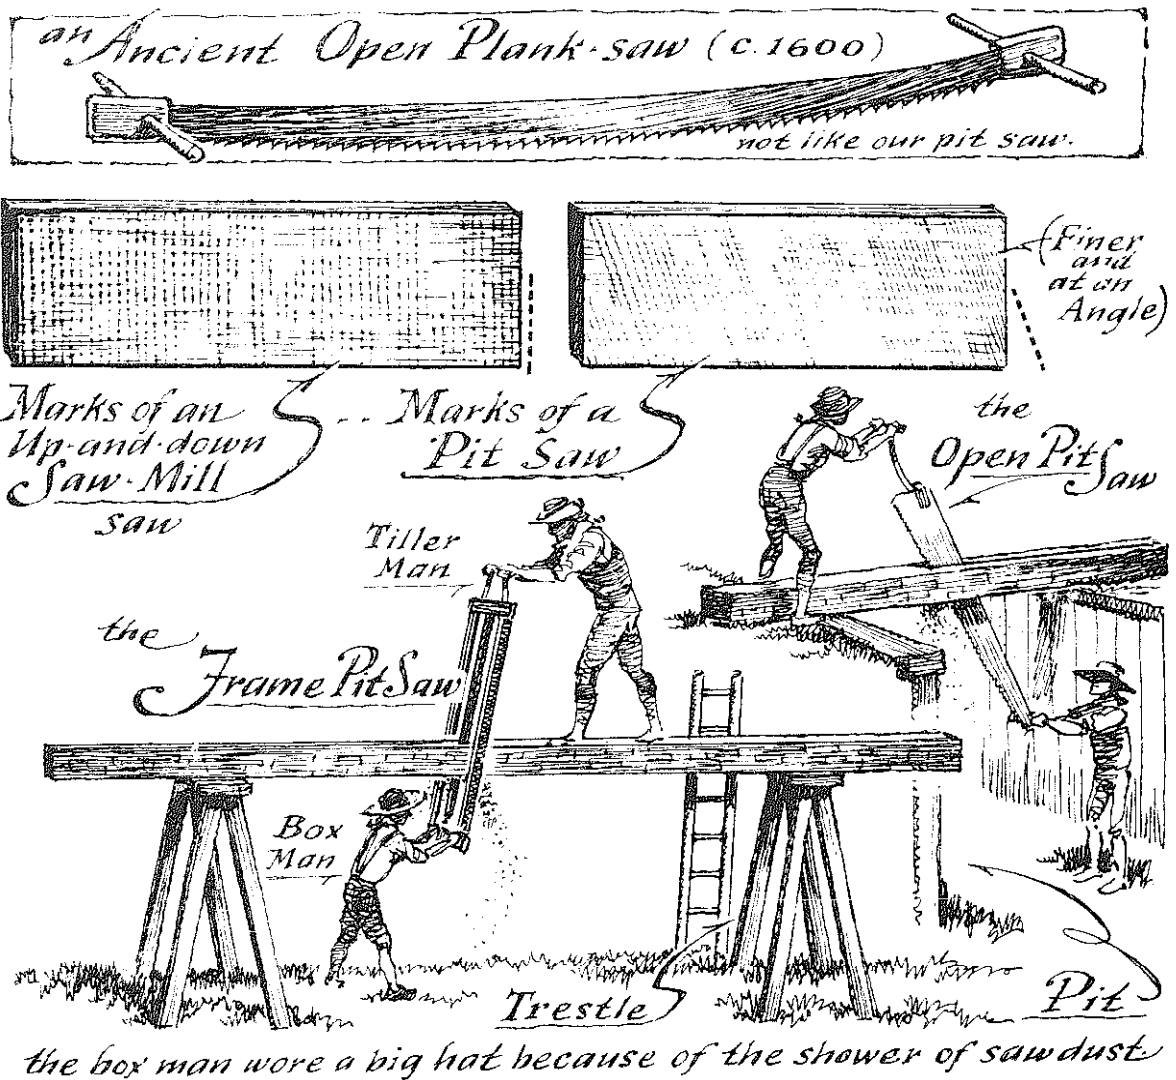 an Ancient Open Plank-saw (c.1600)
not like our pit saw.
(Finer
and
at an
Angle)
Marks of an
Up-and-down
Saw-Mill
saw
-- Marks of a
Pit Saw
the
Open Pit Saw
Tiller
Man
the
Frame Pit Saw
Box
Man
Trestle
Pit
the box man wore a big hat because of the shower of sawdust.